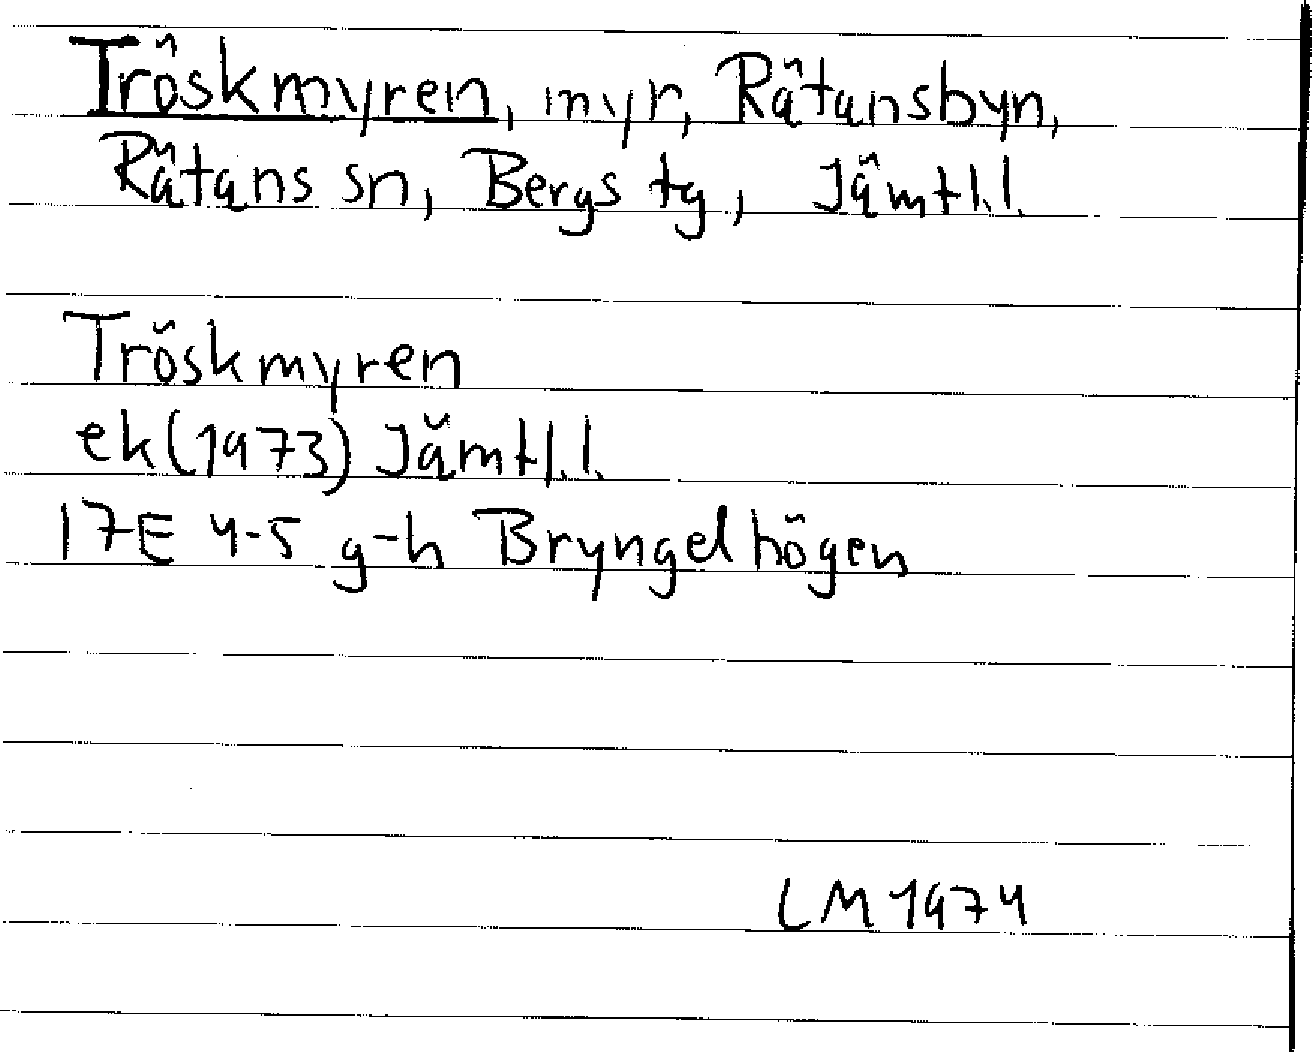 Tröskmyren, myr, Rätansbyn,
Rätans sn, Bergs tg, Jämtl.l.
Tröskmyren
ek(1973) Jämtl.l.
17E 4-5 g-h Bryngelhögen
LM 1974